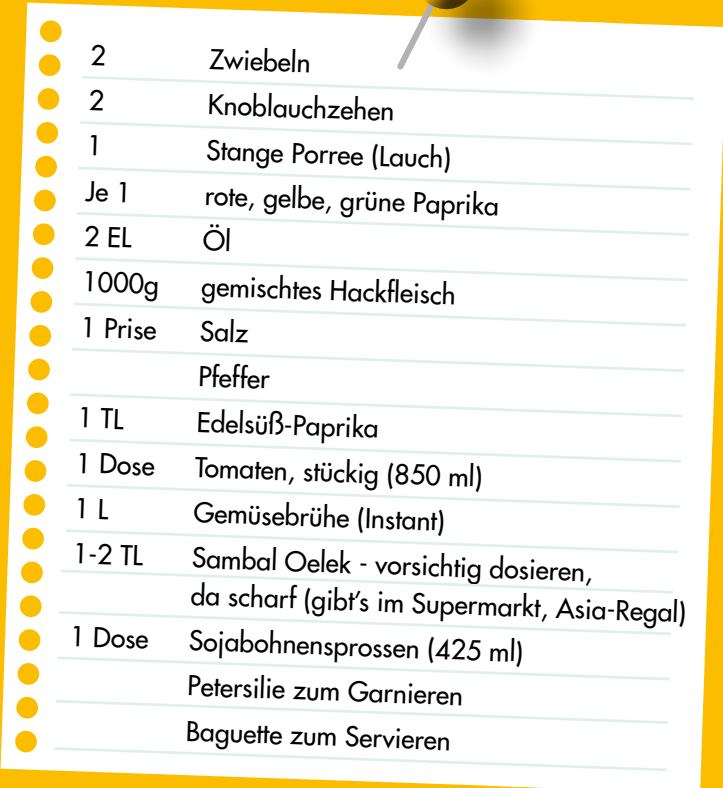 2 Zwiebeln
2 Knoblauchzehen
1 Stange Porree (Lauch)
Je 1 rote, gelbe, grüne Paprika
2 EL Öl
1000g gemischtes Hackfleisch
1 Prise Salz
Pfeffer
1 TL Edelsüß-Paprika
1 Dose Tomaten, stückig (850 ml)
1 L Gemüsebrühe (Instant)
1-2 TL Sambal Oelek - vorsichtig dosieren,
da scharf (gibt's im Supermarkt, Asia-Regal)
1 Dose Sojabohnensprossen (425 ml)
Petersilie zum Garnieren
Baguette zum Servieren